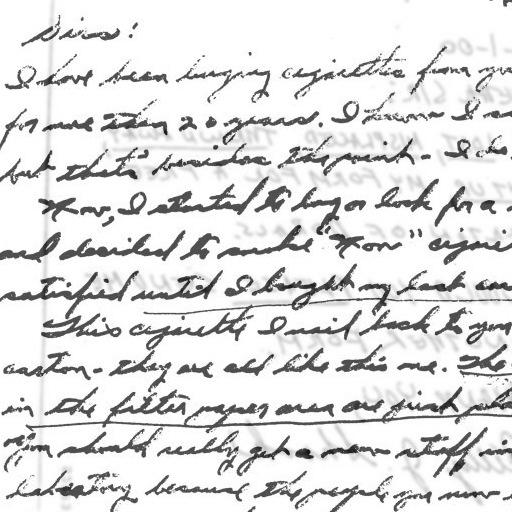 Sirs!
I have been buying cigarettes from you
for more than 20 years. I know I
but thats' besides the point - I do
Now, I started to buy or look for a
and decided to smoke "Now"
satisfied until I bought my last
This cigarette I mail back to you
carton - they are all like this one. The
in the filter paper area are just
You should really get a new staff in
laboratory because the people you now